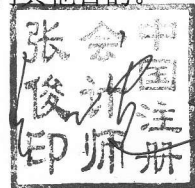 中国注册
会计师
张俊印